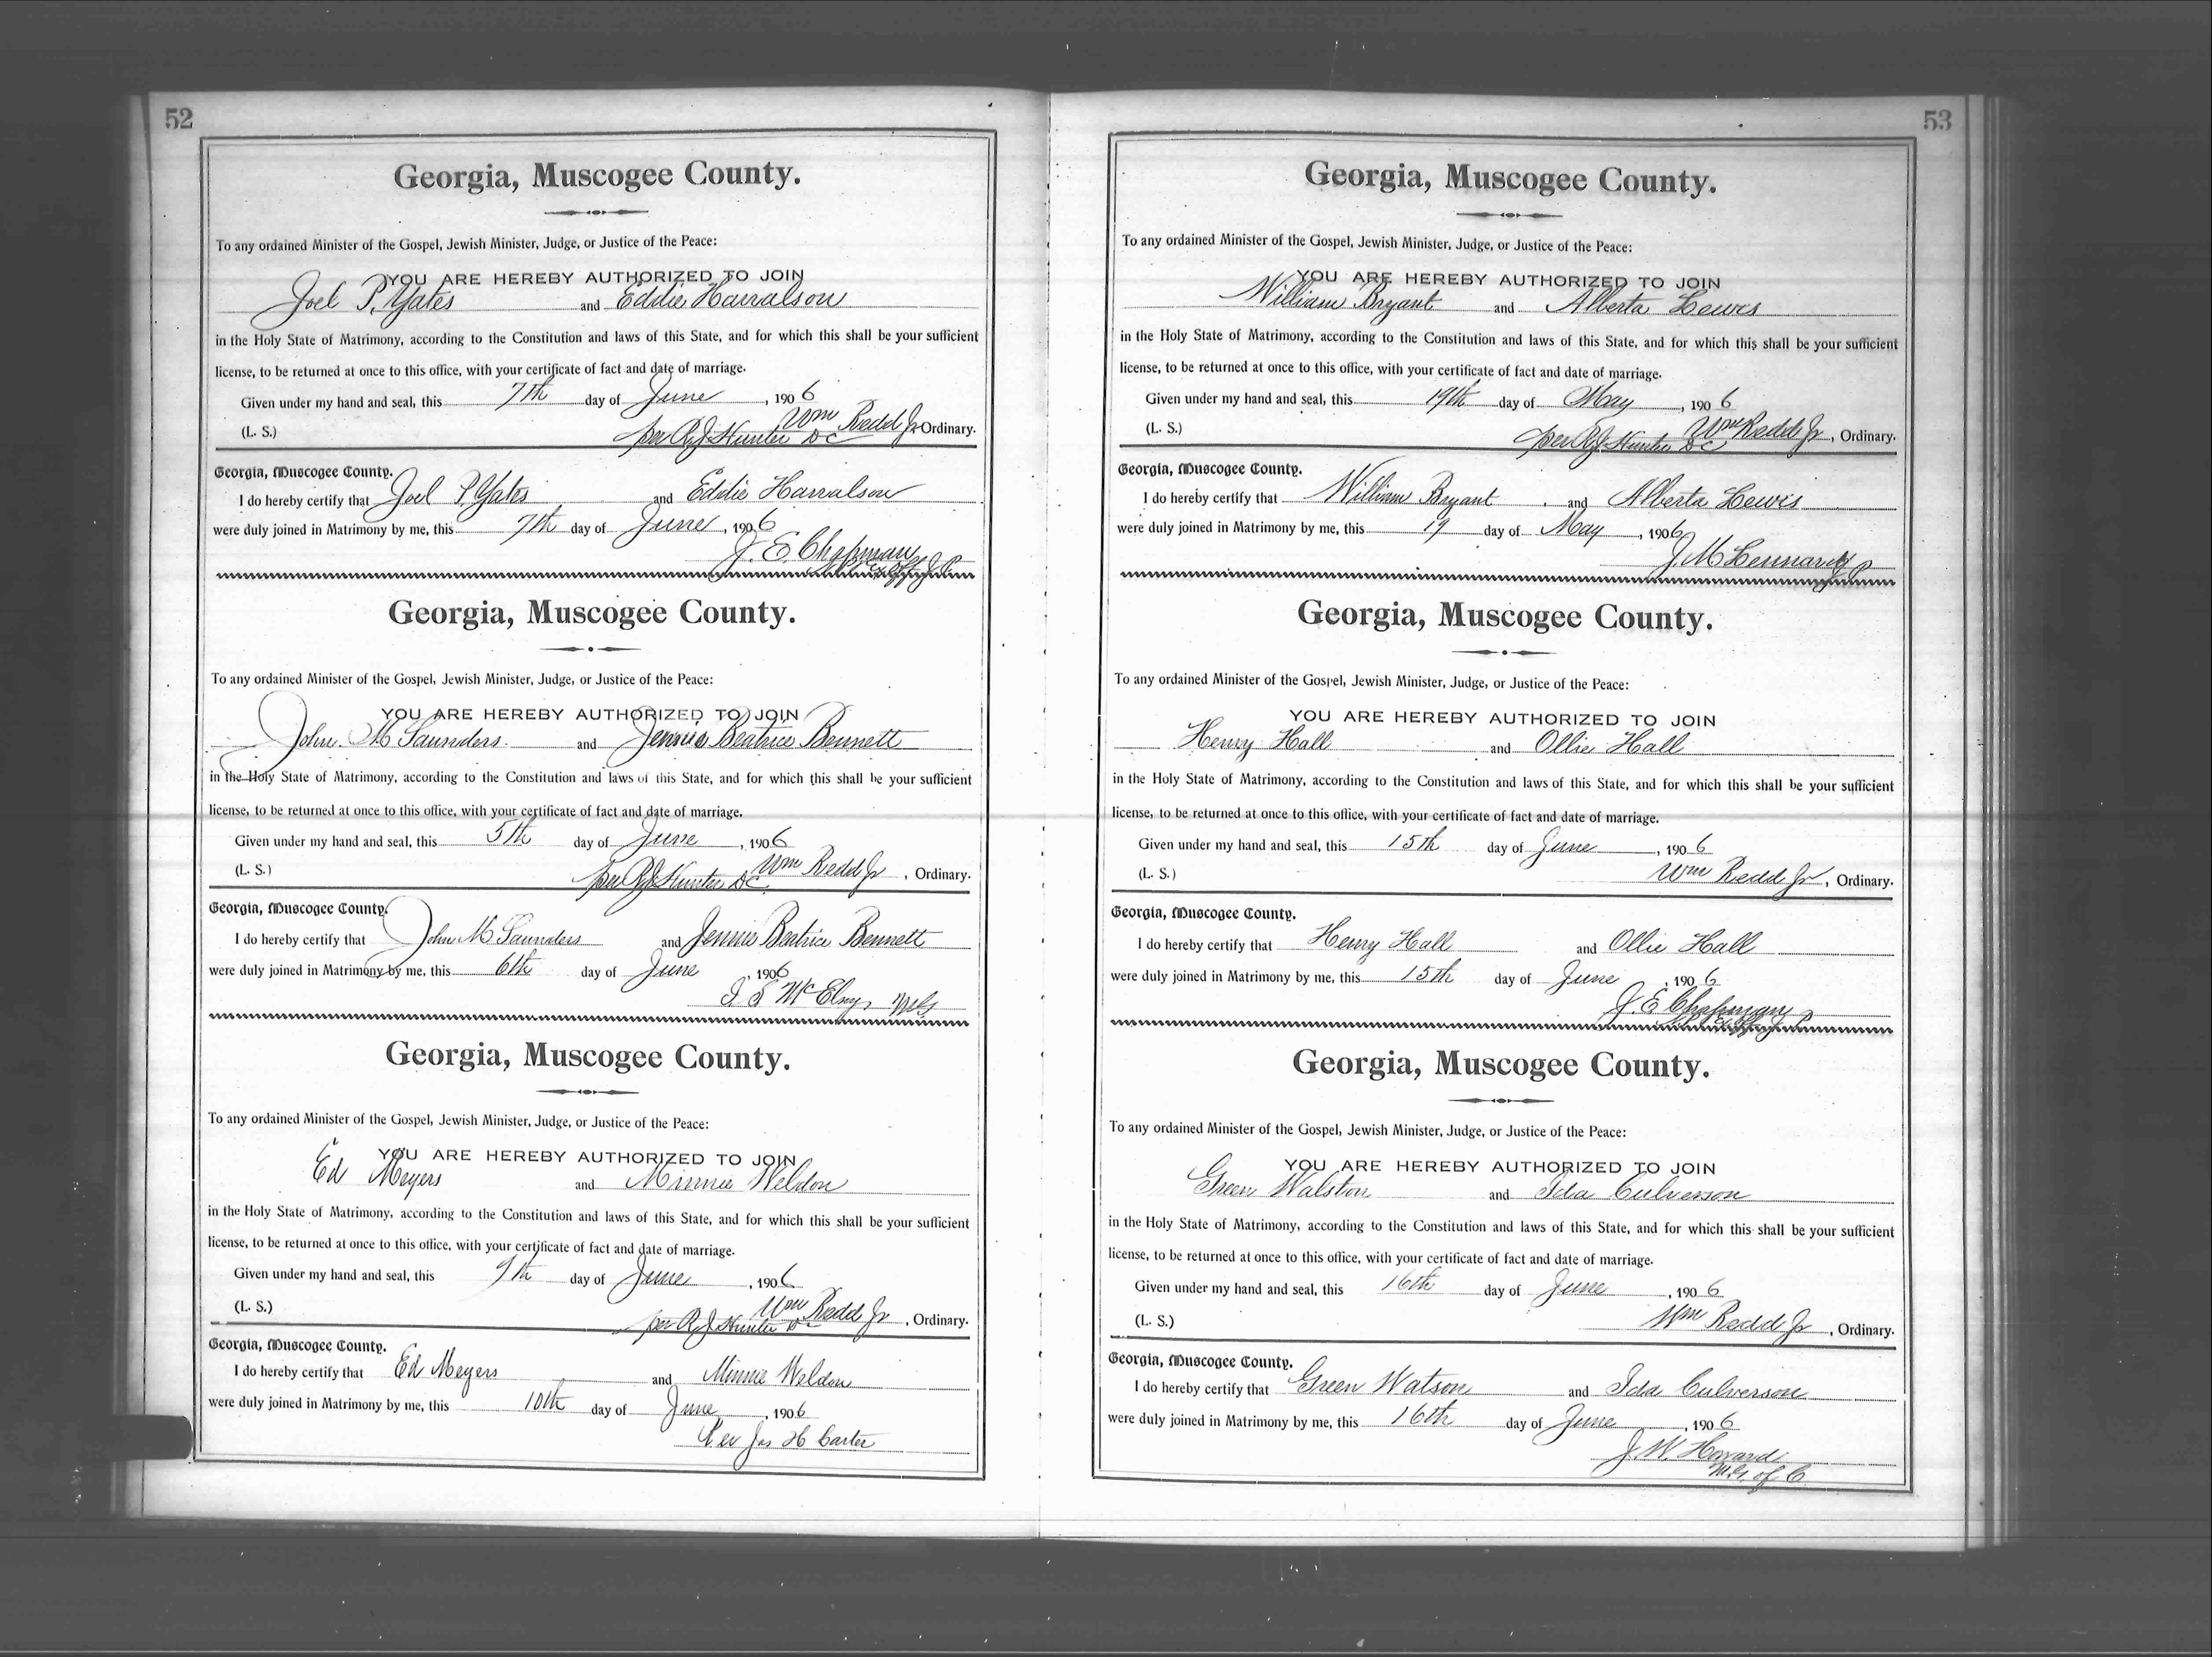 52
Georgia, Muscogee County.
To any ordained Minister of the Gospel, Jewish Minister, Judge, or Justice of the Peace:
YOU ARE HEREBY AUTHORIZED TO JOIN
Joel P. Yates and Eddie Harralson
in the Holy State of Matrimony, according to the Constitution and laws of this State, and for which this shall be your sufficient
license, to be returned at once to this office, with your certificate of fact and date of marriage.
Given under my hand and seal, this 7th day of June, 1906
(L. S.) Wm Redd Jr Ordinary.
per R J Hunter DC
Georgia, Muscogee County.
I do hereby certify that Joel P. Yates and Eddie Harralson
were duly joined in Matrimony by me, this 7th day of June, 1906
J. E. Chapman
Georgia, Muscogee County.
To any ordained Minister of the Gospel, Jewish Minister, Judge, or Justice of the Peace:
YOU ARE HEREBY AUTHORIZED TO JOIN
John. M Saunders. and Jennie Beatrice Bennett
in the Holy State of Matrimony, according to the Constitution and laws of this State, and for which this shall be your sufficient
license, to be returned at once to this office, with your certificate of fact and date of marriage.
Given under my hand and seal, this 5th day of June, 1906
(L. S.) Wm Redd Jr, Ordinary.
per R J Hunter DC
Georgia, Muscogee County.
I do hereby certify that John M Saunders and Jennie Beatrice Bennett
were duly joined in Matrimony by me, this 6th day of June, 1906
Georgia, Muscogee County.
To any ordained Minister of the Gospel, Jewish Minister, Judge, or Justice of the Peace:
YOU ARE HEREBY AUTHORIZED TO JOIN
Ed Meyers and Minnie Weldon
in the Holy State of Matrimony, according to the Constitution and laws of this State, and for which this shall be your sufficient
license, to be returned at once to this office, with your certificate of fact and date of marriage.
Given under my hand and seal, this 9th day of June, 1906
(L. S.) Wm Redd Jr, Ordinary.
per R J Hunter DC
Georgia, Muscogee County.
I do hereby certify that Ed Meyers and Minnie Weldon
were duly joined in Matrimony by me, this 10th day of June, 1906
Rev Jas H Carter
53
Georgia, Muscogee County.
To any ordained Minister of the Gospel, Jewish Minister, Judge, or Justice of the Peace:
YOU ARE HEREBY AUTHORIZED TO JOIN
William Bryant and Alberta Lewis
in the Holy State of Matrimony, according to the Constitution and laws of this State, and for which this shall be your sufficient
license, to be returned at once to this office, with your certificate of fact and date of marriage.
Given under my hand and seal, this 19th day of May, 1906
(L. S.) Wm Redd Jr, Ordinary.
per R J Hunter DC
Georgia, Muscogee County.
I do hereby certify that William Bryant and Alberta Lewis
were duly joined in Matrimony by me, this 19 day of May, 1906
J. M Lennard
JP
Georgia, Muscogee County.
To any ordained Minister of the Gospel, Jewish Minister, Judge, or Justice of the Peace:
YOU ARE HEREBY AUTHORIZED TO JOIN
Henry Hall and Ollie Hall
in the Holy State of Matrimony, according to the Constitution and laws of this State, and for which this shall be your sufficient
license, to be returned at once to this office, with your certificate of fact and date of marriage.
Given under my hand and seal, this 15th day of June, 1906
(L. S.) Wm Redd Jr, Ordinary.
Georgia, Muscogee County.
I do hereby certify that Henry Hall and Ollie Hall
were duly joined in Matrimony by me, this 15th day of June, 1906
J. E. Chapman
Georgia, Muscogee County.
To any ordained Minister of the Gospel, Jewish Minister, Judge, or Justice of the Peace:
YOU ARE HEREBY AUTHORIZED TO JOIN
Green Walston and Ida Culverson
in the Holy State of Matrimony, according to the Constitution and laws of this State, and for which this shall be your sufficient
license, to be returned at once to this office, with your certificate of fact and date of marriage.
Given under my hand and seal, this 16th day of June, 1906
(L. S.) Wm Redd Jr, Ordinary.
Georgia, Muscogee County.
I do hereby certify that Green Watson and Ida Culverson
were duly joined in Matrimony by me, this 16th day of June, 1906
J. W. Howard
M.G. of C